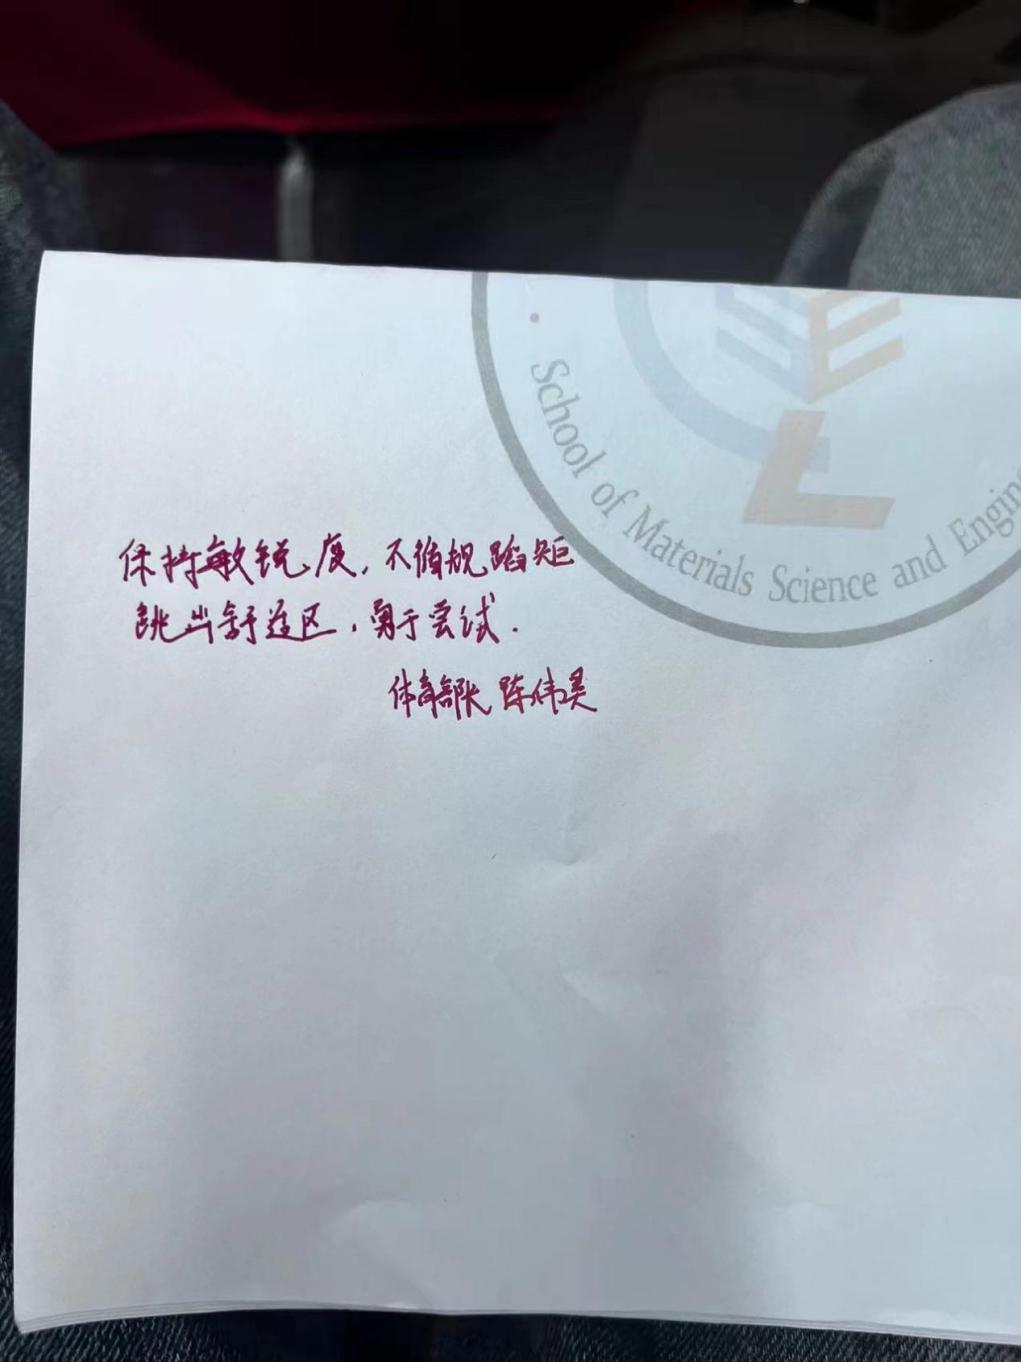 School of Materials Science and Engin
保持敏锐度,不循规蹈矩
跳出舒适区,勇于尝试.
体育部长 陈伟昊